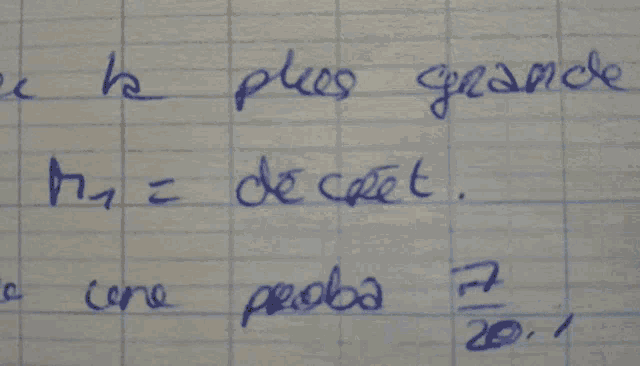 la plus grande
M₁ = décret.
une proba 7/20.